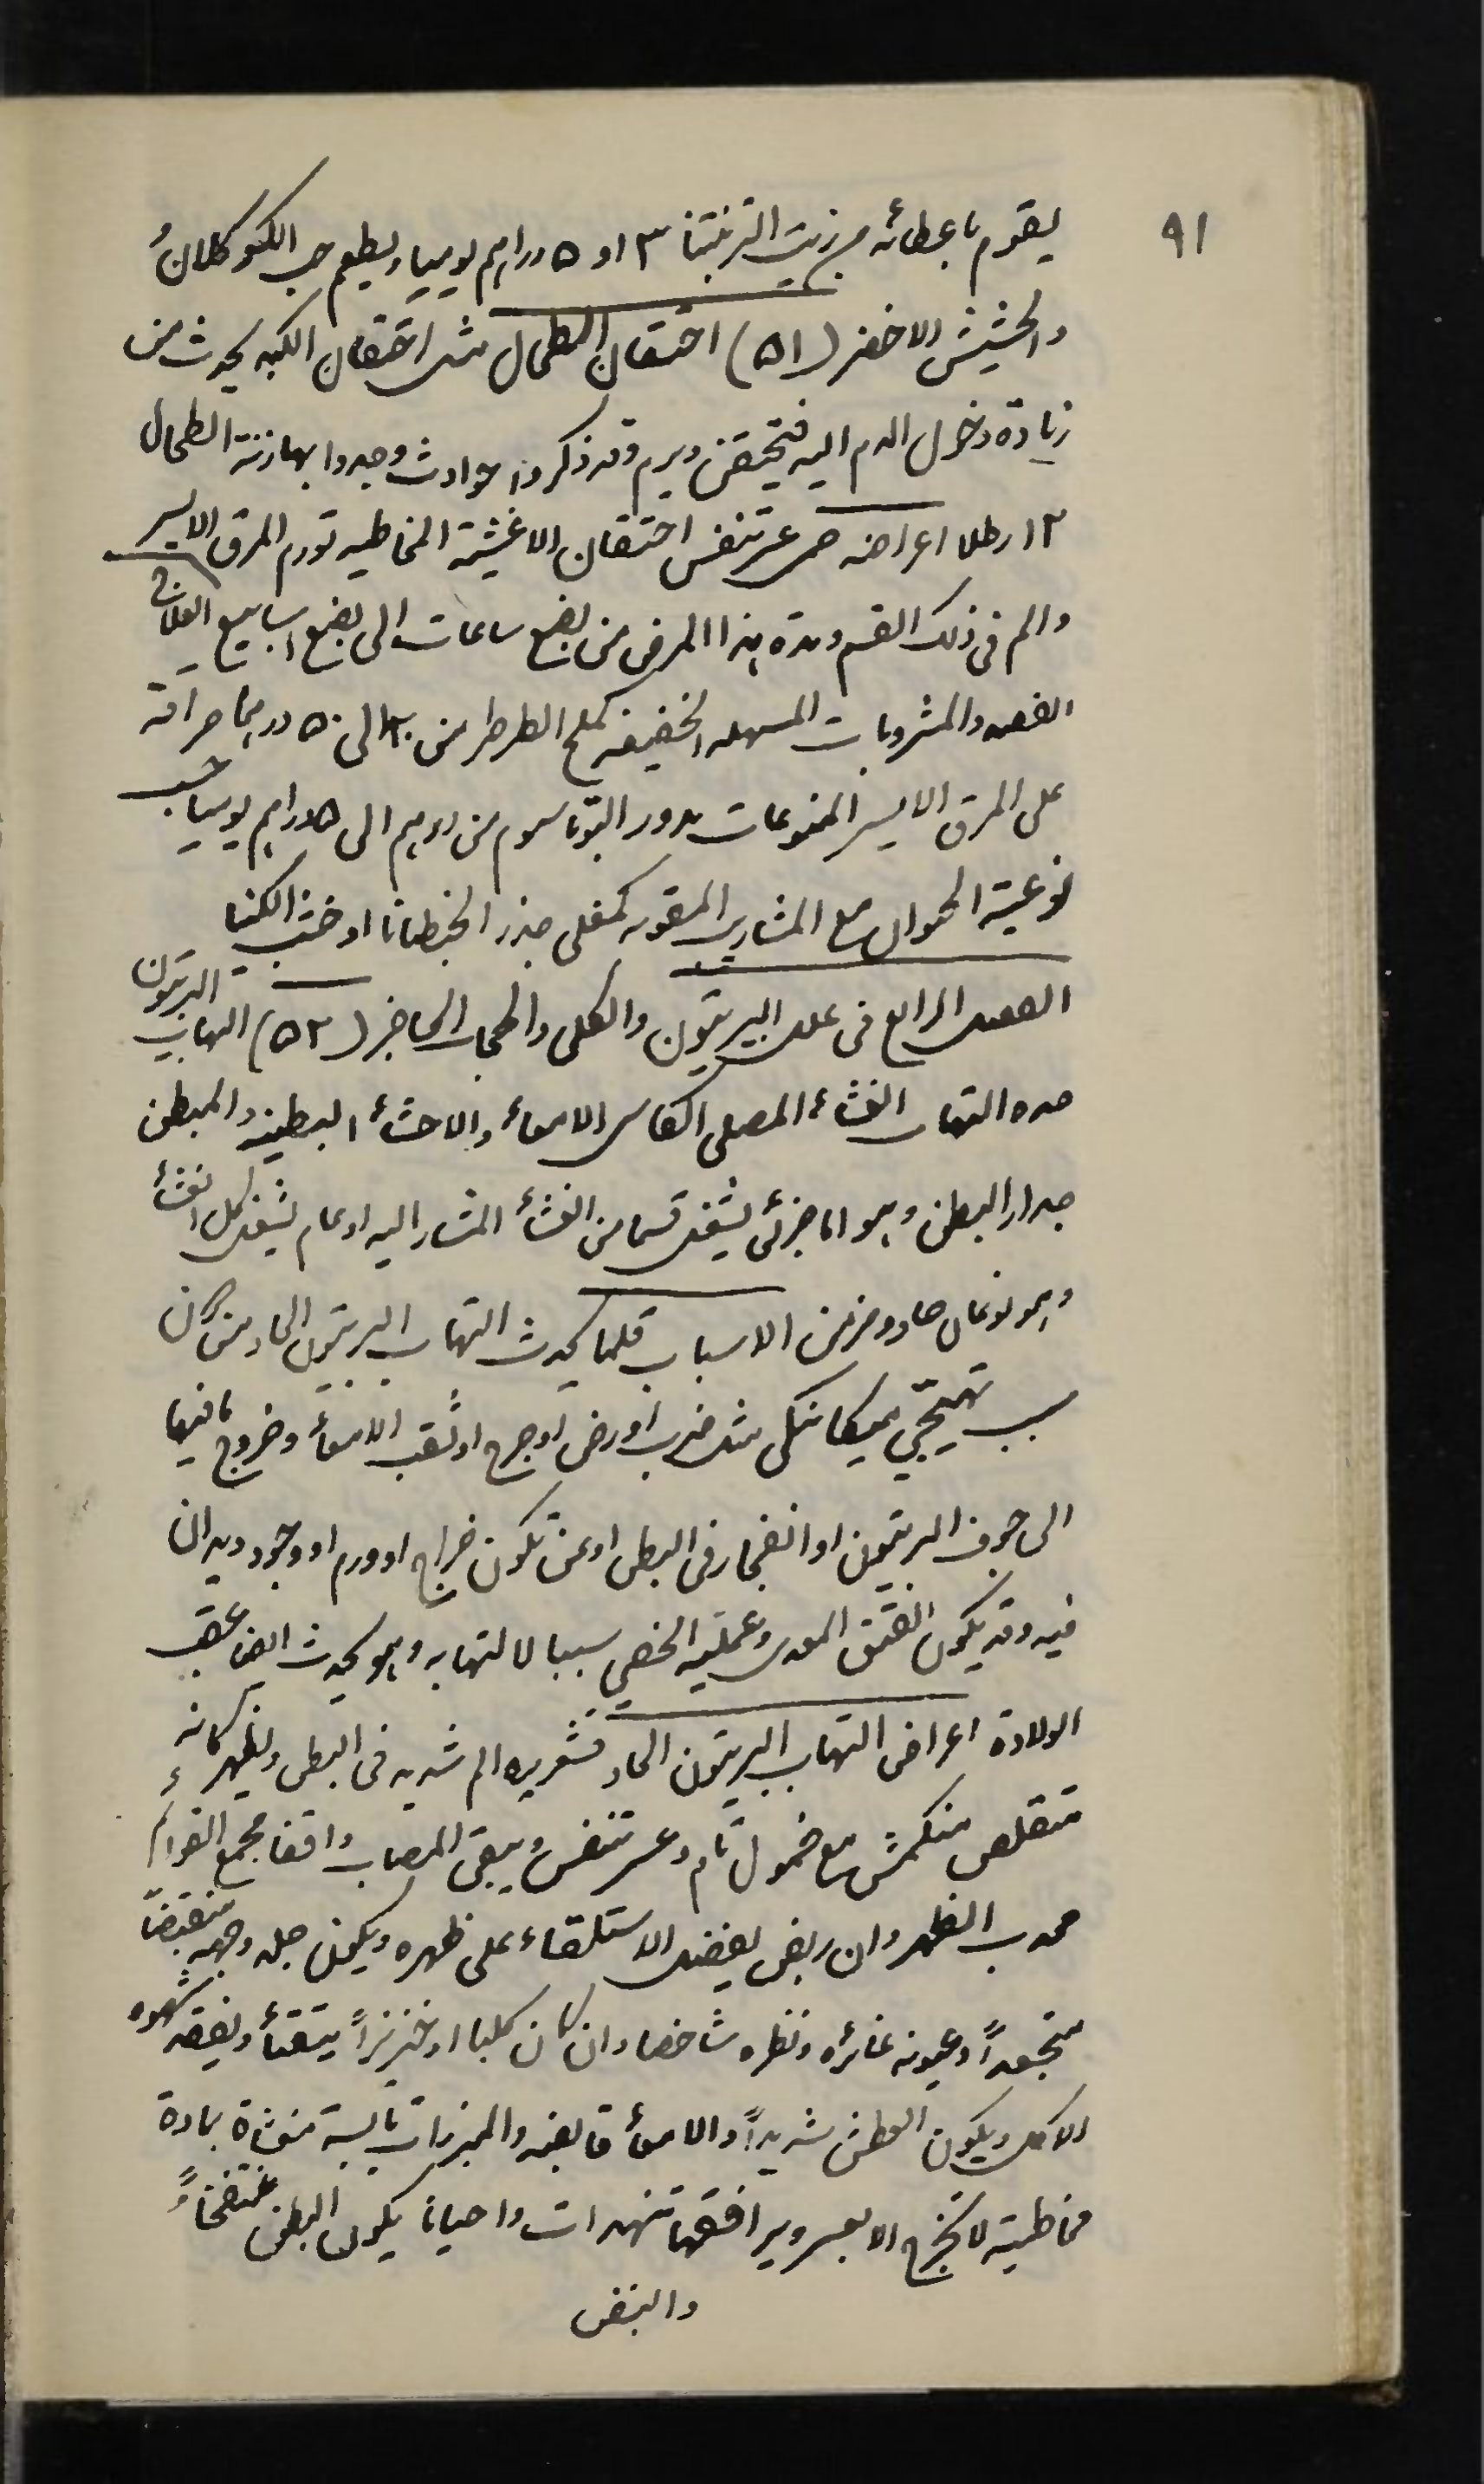 ٩١
يقوم باعطائه من زيت التربنتنا ٣ او ٥ دراهم يوميا ويطعم حب الككو كلانُ
والحشيش الاخضر (٥١) احتقان الطحال مثل احتقان الكبد يحدث من
زيادة دخول الدم اليه فيحتقن ويرم وقد ذكروا حوادث وجدوا بها زنة الطحال
١٢ رطلا اعراضه حمى عسر تنفس احتقان الاغشية المخاطيه تورم المرق الايسر
والم فى ذلك القسم ومدة هذا المرض من بضع ساعات الى بضع اسابيع العلاج
الفصد والمشروبات المسهله الخفيفه كملح الطرطر من ٣٠ الى ٥٠ درهما حراقة
على المرق الايسر المنوعات يدور البوتاسيوم من درهم الى ٥ دراهم يوميا حسب
نوعية الحيوان مع المشارب المقويه كمغلى جذر الخنطيانا او خشب الكنا
الفصل الرابع فى علل البريتون والكلى والحجاب الحاجز (٥٢) التهاب البريتون
حده التهاب الغشاء المصلى الكاسى الامعاء والاحشاء البطنيه والمبطن
جدار البطن وهو اما جزئى يشغل قسما من الغشاء المشار اليه او عام يشغل كل الغشاء
وهو نوعان حاد ومزمن الاسباب قلما يحدث التهاب البريتون الحاد من دون
سبب تهيجي ميكانيكى مثل ضرب او رض او جرح او ثقب الامعاء وخروج ما فيها
الى جوف البريتون او انفجار فى البطن او عن تكون خراج او ورم او وجود ديدان
فيه وقد يكون الفتق المعدى وعملية الخصي سببا لالتهابه وهو يحدث ايضا عقب
الولادة اعراض التهاب البريتون الحاد قشعريره الم شديد فى البطن ويظهر كانه
متقلص منكمش مع خمول تام وعسر تنفس ويبقى المصاب واقفا مجمع القوائم
محدب الظهر وان ربض يفضل الاستلقاء على ظهره ويكون جلد وجهه منقبضاً
متجعداً وعيونه غائره ونظره شاخصا وان كان كلبا او خنزيراً يتقيأ ويفقد شهوه
الاكل ويكون العطش شديداً والامعاء قابضه والمبرزات يابسة مغشاة بمادة
مخاطية لا تخرج الا بعسر ويرافقها تنهدات واحيانا يكون البطن منتفخاً
والنبض